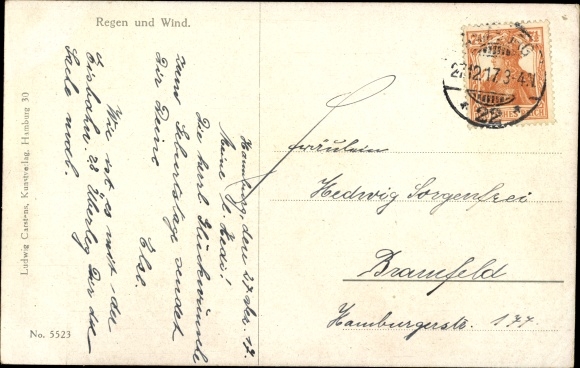 Regen und Wind.
Hamburg, den 27. Dez. 17.
Meine lb. Hedi!
Die herzl. Glückwünsche
zum Geburtstage sendet
Dir Deine
Else.
Wie ist es mit der
Eisbahn.
mal.
Ludwig Carstens, Kunstverlag, Hamburg 30
No. 5523
27.12.17. 3-4 N
* 22 *
Fräulein
Hedwig Sorgenfrei
Bramfeld
Hamburgerstr. 177.